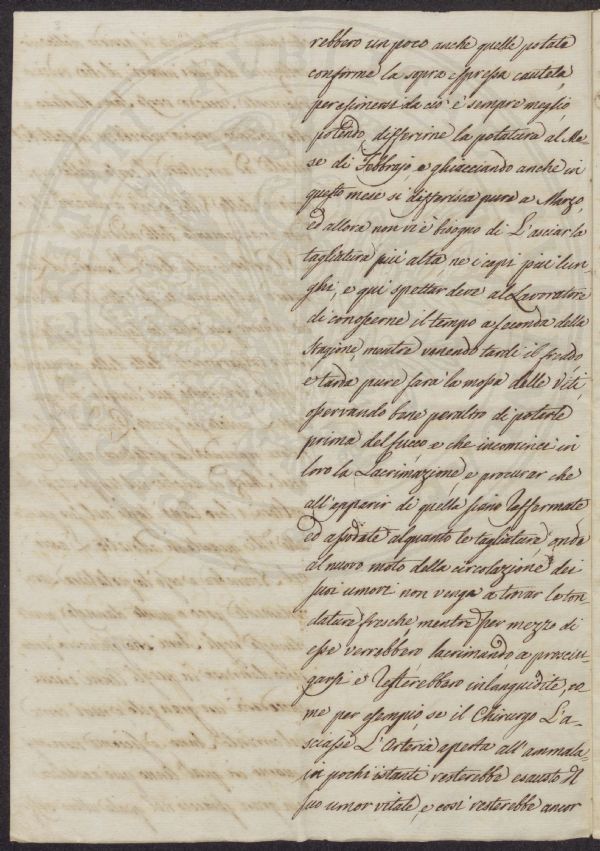 rebbero un poco anche quelle potate
conforme la sopra espressa cautela,
per esimersi da ciò è sempre meglio,
potendo, differirne la potatura al Me-
se di Febbrajo, e ghiacciando anche in
questo mese si differisca pure a Marzo,
ed allora non vi è bisogno di L'asciar la
tagliatura più alta, ne i capi più lun
ghi, e qui spettar deve al Lavoratore
di conoscerne il tempo a seconda della
Stagione, mentre venendo tardi il freddo
e tarda pure sarà la mossa delle Viti,
osservando bene peraltro di poterle
prima del succo e che incominci in
loro la Lacrimazione, e procurar che
all'apparir di quella siano raffermate
ed assodate alquanto le tagliature, onde
al nuovo moto della circolazione dei
suoi umori non venga a trovar le ton
dature fresche, mentre per mezzo di
esse verrebbero lacrimando a prosciu-
garsi e resterebbero inlanguidite, co
me per esempio, se il Chirurgo L'a-
sciasse L'Arteria aperta all'ammala-
in pochi istanti resterebbe esausto di
suo umor vitale, e così resterebbe ancor